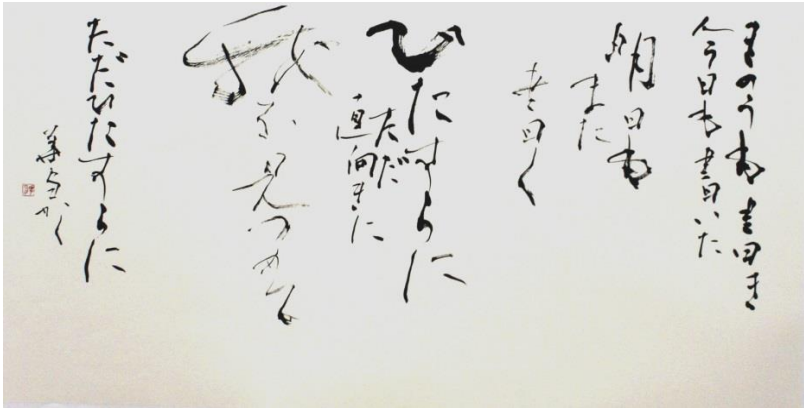 きのうも書き
今日も書いた
明日も
また
書く
ひたすらに
ただ
直向きに
我を見つめる
ただひたすらに
かく